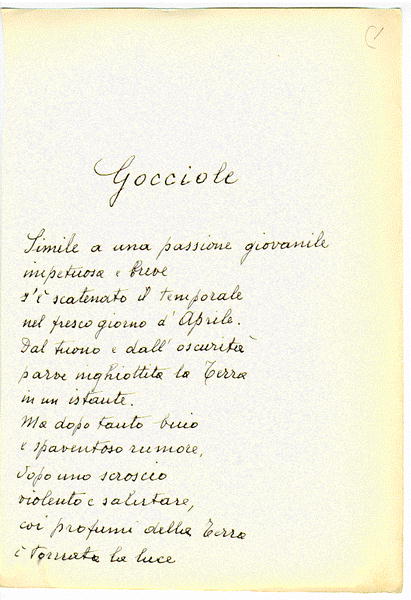 Gocciole
Simile a una passione giovanile
impetuosa e breve
s'è scatenato il temporale
nel fresco giorno d'Aprile.
Dal tuono e dall'oscurità
parve inghiottita la Terra
in un istante.
Ma dopo tanto buio
e spaventoso rumore,
dopo uno scroscio
violento e salutare,
coi profumi della Terra
è tornata la luce